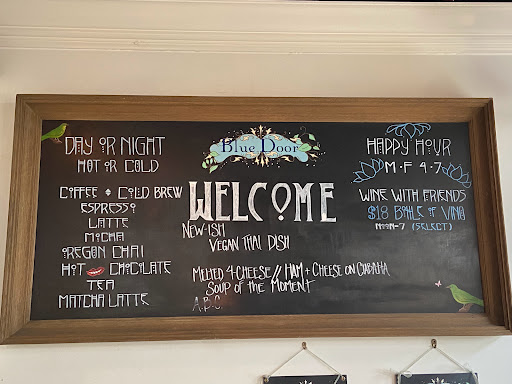 Blue Door
DAY OR NIGHT
HOT OR COLD
COFFEE + COLD BREW
ESPRESSO
LATTE
MOCHA
OREGON CHAI
HOT CHOCOLATE
TEA
MATCHA LATTE
WELCOME
NEW-ISH
VEGAN THAI DISH
MELTED 4-CHEESE // HAM + CHEESE ON CUBANA
SOUP OF THE MOMENT
A.B.C.
HAPPY HOUR
M-F 4-7
WINE WITH FRIENDS
$18 BOTTLE OF VINO
NOON-7 (SELECT)